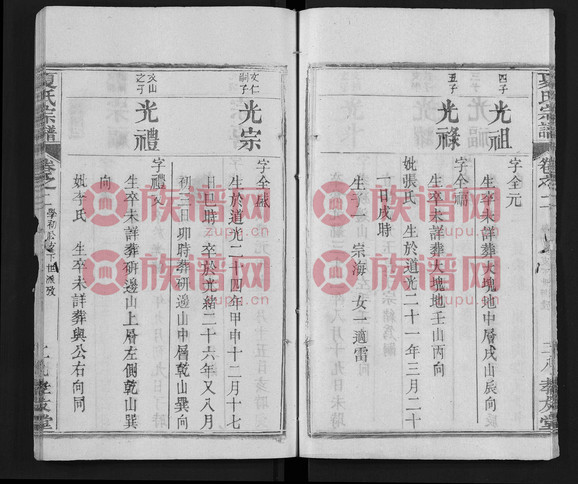 夏氏宗譜
卷之二
四子
光祖
字全元
生卒未詳葬大塊地中層戌山辰向
五子
光祿
字全福
生卒未詳葬大塊地壬山丙向
妣張氏 生於道光二十一年三月二十
一日戌時
生子一 宗海 女二適雷
孝友堂
文仁
嗣子
光宗
字全
生於道光二十四年甲申十二月十七
日巳時 卒於光緒二十六年又八月
初三日卯時葬硏邊山中層乾山巽向
文山
之子
光禮
字禮
生卒未詳葬硏邊山上層左側乾山巽
向
妣李氏 生卒未詳葬與公右向同
夏氏宗譜
卷之二
學初公支下世派攷
孝友堂
族谱网
zupu.cn